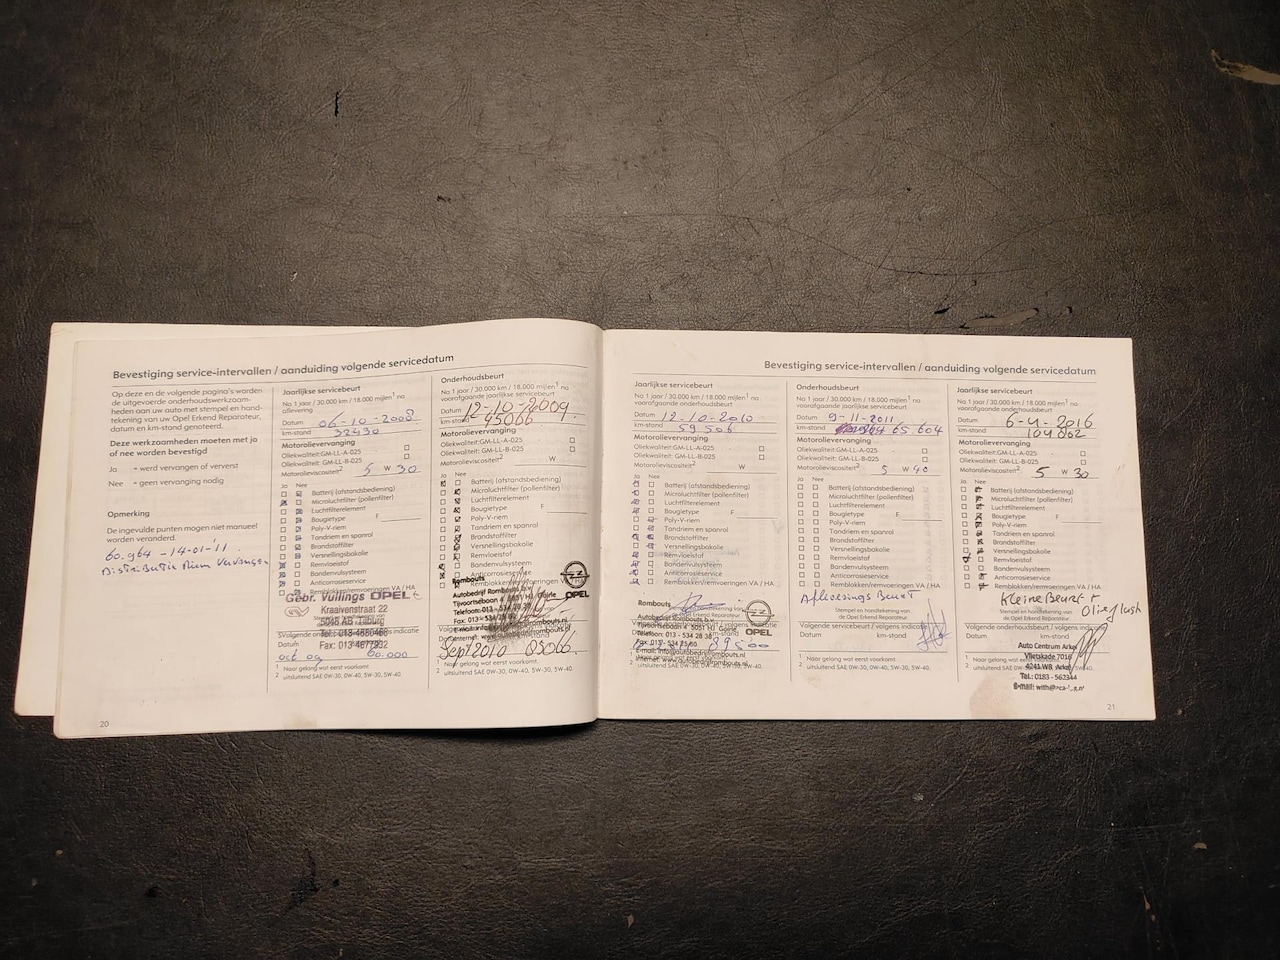 Bevestiging service-intervallen / aanduiding volgende servicedatum
Op deze en de volgende pagina's worden
de uitgevoerde onderhoudswerkzaam-
heden aan uw auto met stempel en hand-
tekening van uw Opel Erkend Reparateur,
datum en km-stand genoteerd.
Deze werkzaamheden moeten met ja
of nee worden bevestigd
Ja = werd vervangen of ververst
Nee = geen vervanging nodig
Opmerking
De ingevulde punten mogen niet manueel
worden veranderd.
60.964 - 14-01-'11
Distributie Riem Vervangen
20
Jaarlijkse servicebeurt
Na 1 jaar / 30.000 km / 18.000 mijlen¹ na
aflevering
Datum 06-10-2008
km-stand 32430
Motorolieverversing
Oliekwaliteit: GM-LL-A-025
Oliekwaliteit: GM-LL-B-025
Motorolieviscositeit² 5 W 30
Ja Nee
Batterij (afstandsbediening)
Microluchtfilter (pollenfilter)
Luchtfilterelement
Bougietype F
Poly-V-riem
Tandriem en spanrol
Brandstoffilter
Versnellingsbakolie
Remvloeistof
Bandenvulsysteem
Anticorrosieservice
Remblokken/remvoeringen VA / HA
Gebr. Vullings OPEL
Kraaivenstraat 22
5048 AB Tilburg
Tel.: 013-4680468
Fax: 013-4677932
Datum
okt 09 60.000
¹ Naar gelang wat eerst voorkomt.
² uitsluitend SAE 0W-30, 0W-40, 5W-30, 5W-40.
Onderhoudsbeurt
Na 1 jaar / 30.000 km / 18.000 mijlen¹ na
voorafgaande jaarlijkse servicebeurt
Datum 12-10-2009
km-stand 45066
Motorolieverversing
Oliekwaliteit: GM-LL-A-025
Oliekwaliteit: GM-LL-B-025
Motorolieviscositeit² W
Ja Nee
Batterij (afstandsbediening)
Microluchtfilter (pollenfilter)
Luchtfilterelement
Bougietype F
Poly-V-riem
Tandriem en spanrol
Brandstoffilter
Versnellingsbakolie
Remvloeistof
Bandenvulsysteem
Anticorrosieservice
Remblokken/remvoeringen VA / HA
Rombouts
Autobedrijf Rombouts b.v.
Tijvoortsebaan 4 5051 HJ Goirle
Telefoon: 013 - 534 28 38
Fax: 013 - 534 25 80
OPEL
Sept 2010
¹ Naar gelang wat eerst voorkomt.
² uitsluitend SAE 0W-30, 0W-40, 5W-30, 5W-40.
Bevestiging service-intervallen / aanduiding volgende servicedatum
Jaarlijkse servicebeurt
Na 1 jaar / 30.000 km / 18.000 mijlen¹ na
voorafgaande onderhoudsbeurt
Datum 12-10-2010
km-stand 59506
Motorolieverversing
Oliekwaliteit: GM-LL-A-025
Oliekwaliteit: GM-LL-B-025
Motorolieviscositeit² W
Ja Nee
Batterij (afstandsbediening)
Microluchtfilter (pollenfilter)
Luchtfilterelement
Bougietype F
Poly-V-riem
Tandriem en spanrol
Brandstoffilter
Versnellingsbakolie
Remvloeistof
Bandenvulsysteem
Anticorrosieservice
Remblokken/remvoeringen VA / HA
Rombouts
Autobedrijf Rombouts b.v.
Tijvoortsebaan 4 5051 HJ Goirle
Telefoon: 013 - 534 28 38
Fax: 013 - 534 25 80
E-mail: info@autobedrijfrombouts.nl
Internet: www.autobedrijfrombouts.nl
OPEL
89500
uitsluitend SAE 0W-30, 0W-40, 5W-30, 5W-40.
Onderhoudsbeurt
Na 1 jaar / 30.000 km / 18.000 mijlen¹ na
voorafgaande jaarlijkse servicebeurt
Datum 9-11-2011
km-stand 65.604
Motorolieverversing
Oliekwaliteit: GM-LL-A-025
Oliekwaliteit: GM-LL-B-025
Motorolieviscositeit² 5 W 40
Ja Nee
Batterij (afstandsbediening)
Microluchtfilter (pollenfilter)
Luchtfilterelement
Bougietype F
Poly-V-riem
Tandriem en spanrol
Brandstoffilter
Versnellingsbakolie
Remvloeistof
Bandenvulsysteem
Anticorrosieservice
Remblokken/remvoeringen VA / HA
Afleverings Beurt
Stempel en handtekening van
de Opel Erkend Reparateur
Volgende servicebeurt / volgens indicatie
Datum km-stand
¹ Naar gelang wat eerst voorkomt.
² uitsluitend SAE 0W-30, 0W-40, 5W-30, 5W-40.
Jaarlijkse servicebeurt
Na 1 jaar / 30.000 km / 18.000 mijlen¹ na
voorafgaande onderhoudsbeurt
Datum 6-4-2016
km-stand 104 802
Motorolieverversing
Oliekwaliteit: GM-LL-A-025
Oliekwaliteit: GM-LL-B-025
Motorolieviscositeit² 5 W 30
Ja Nee
Batterij (afstandsbediening)
Microluchtfilter (pollenfilter)
Luchtfilterelement
Bougietype F
Poly-V-riem
Tandriem en spanrol
Brandstoffilter
Versnellingsbakolie
Remvloeistof
Bandenvulsysteem
Anticorrosieservice
Remblokken/remvoeringen VA / HA
Kleine Beurt +
Olieflush
Stempel en handtekening van
de Opel Erkend Reparateur
Volgende onderhoudsbeurt / volgens indicatie
Datum km-stand
Auto Centrum Arkel
Vlietskade 7016
4241 WR Arkel
Tel.: 0183 - 562344
21